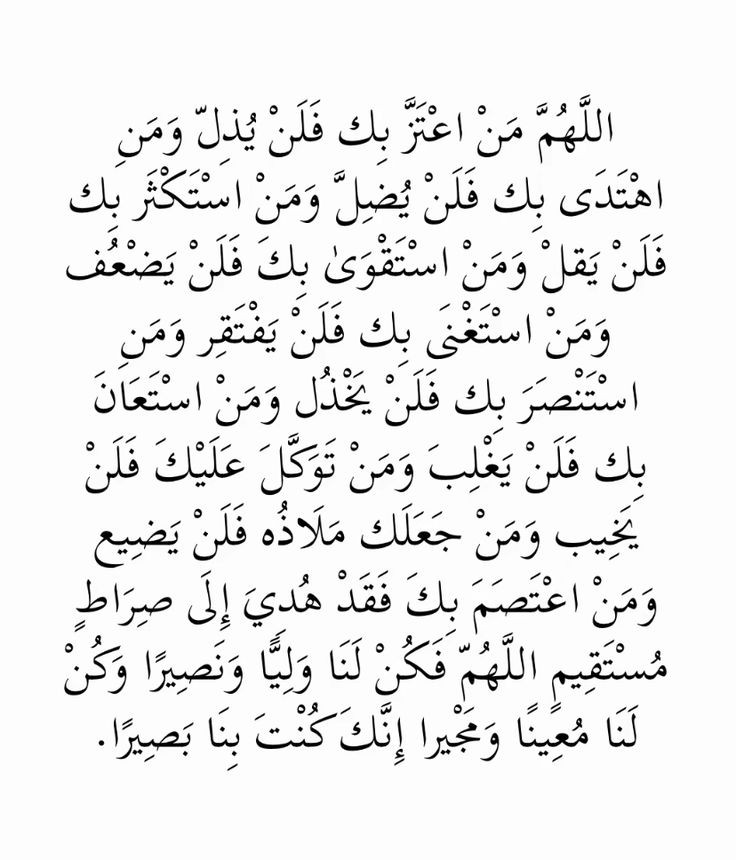 اللَّهُمَّ مَنْ اعْتَزَّ بِك فَلَنْ يُذِلّ وَمَنِ
اهْتَدَى بِك فَلَنْ يُضِلَّ وَمَنْ اسْتَكْثَر بِك
فَلَنْ يَقلْ وَمَنْ اسْتَقْوَىٰ بِكَ فَلَنْ يَضْعُف
وَمَنْ اسْتَغْنَى بِك فَلَنْ يَفْتَقِر وَمَنِ
اسْتَنْصَرَ بِك فَلَنْ يَخْذُل وَمَنْ اسْتَعَانَ
بِك فَلَنْ يَغْلِبَ وَمَنْ تَوَكَّلَ عَلَيْكَ فَلَنْ
يَخِيب وَمَنْ جَعَلَك مَلَاذُه فَلَنْ يَضِيع
وَمَنْ اعْتَصَمَ بِكَ فَقَدْ هُدِيَ إِلَى صِرَاطٍ
مُسْتَقِيمٍ اللَّهُمّ فَكُنْ لَنَا وَلِيًّا وَنَصِيرًا وَكُنْ
لَنَا مُعِينًا وَمَجْيرا إِنَّكَ كُنْتَ بِنَا بَصِيرًا.